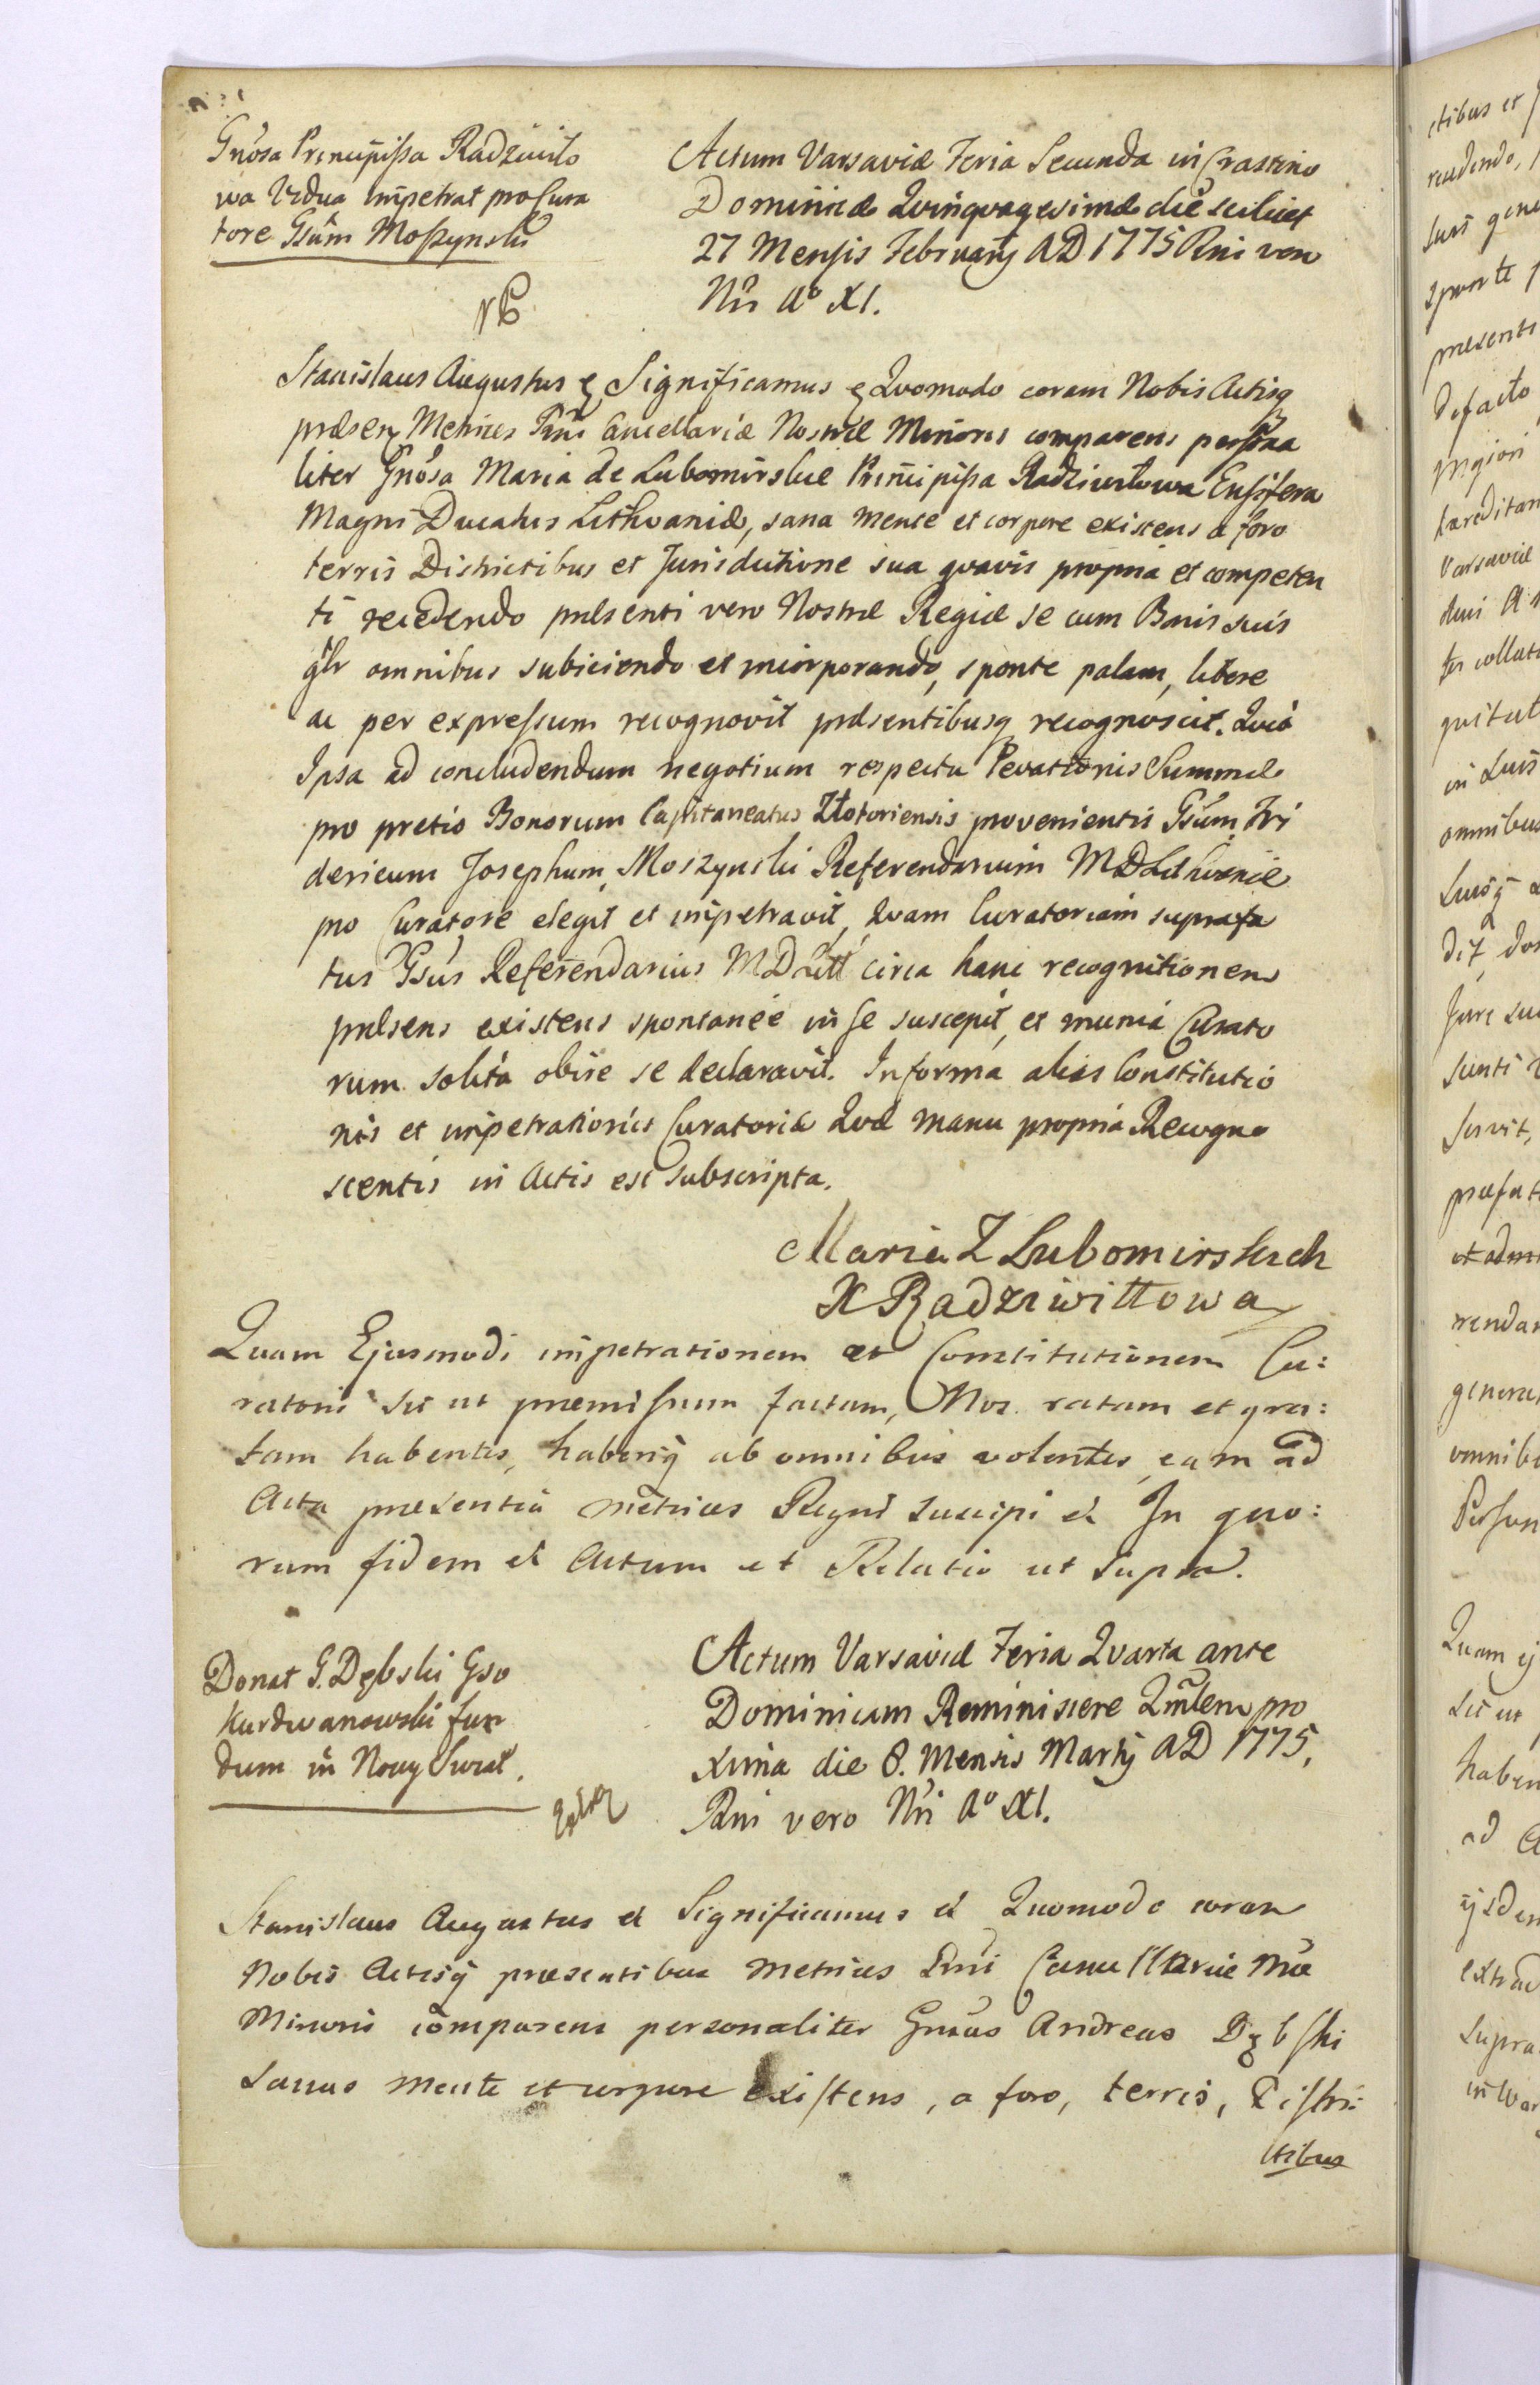 Gnosa Principissa Radziwiło
wa Vidua impetrat pro Cura
tore Gsum Moszynski
NB
Actum Varsaviæ Feria Secunda in Crastino
Dominicæ Quinquagesimæ die scilicet
27 Mensis Februarij AD 1775 Rni vero
Nri Aº XI.
Stanislaus Augustus & Significamus & Quomodo coram Nobis Actisq
præsen Metrices Rni Cancellariæ Nostræ Minoris comparens persona
liter Gnosa Maria de Lubomirskie Principissa Radziwiłowa Ensifera
Magni Ducatus Lithvaniæ, sana mente et corpore existens a foro
terris Districtibus et Jurisdictione sua qvavis propria et competen
ti recedendo præsenti vero Nostræ Regiæ se cum Bonis suis
glr omnibus subiiciendo et incorporando, sponte palam, libere
ac per expressum recognovit præsentibusq recognoscit. Qvia
Ipsa ad concludendum negotium respectu levationis Summæ
pro pretio Bonorum Capitaneatus Złotoriensis provenientis Gsum Fri
dericum Josephum Moszynski Referendarium MDLithvaniæ
pro Curatore elegit et impetravit, Qvam Curatoriam suprafa
tus Gsus Referendarius MDLitt circa hanc recognitionem
præsens existens spontanée in se suscepit, et munia Curato
rum solita obire se declaravit. In forma alias Constitutio
nis et impetrationis Curatoriæ Qvæ manu propria Recogno
scentis in Actis est subscripta.
Maria Z Lubomirskich
X Radziwiłłowa
Quam Ejusmodi impetrationem et Constitutionem Cu:
ratoris sic ut præmissum factam, Nos ratam et gra:
tam habentes, haberiq ab omnibus volentes, eam ad
Acta præsentia Metrices Regni suscipi & In quo:
rum fidem & Actum et Relatio ut supra.
Donat G. Dębski Gso
Kurdwanowski fun
dum in Nowy Swiat.
Actum Varsaviæ Feria Qvarta ante
Dominicam Reminiscere Qmlem pro
xima die 8. Mensis Martij AD 1775,
Rni vero Nri Aº XI.
Stanislaus Augustus & Significamus & Quomodo coram
Nobis Actisq præsentibus Metrices Rni Cancellariæ Nræ
Minoris comparens personaliter Gnosus Andreas Dębski
sanus mente et corpore existens, a foro, terris, Distri:
ctibus